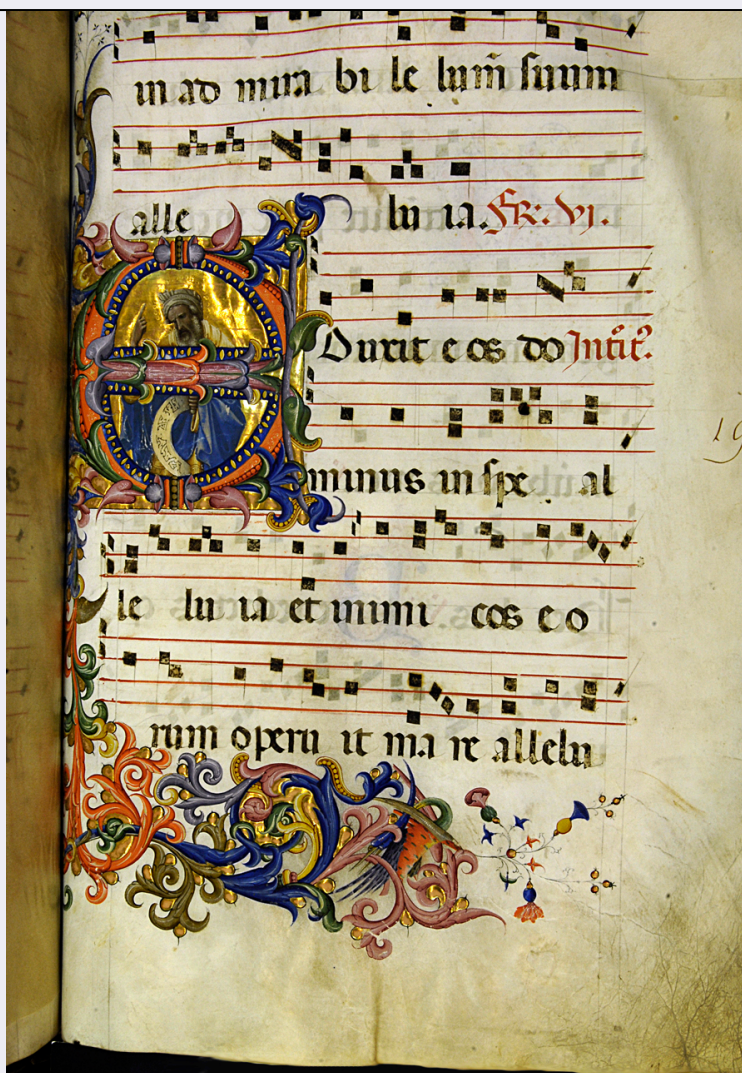 in ad mira bi le lum̄ suum
alle lu ia. Fr. VI.
E Duxit e os do Introit9.
minus in spe al
le lu ia et inimi cos e o
rum operu it ma re allelu
19